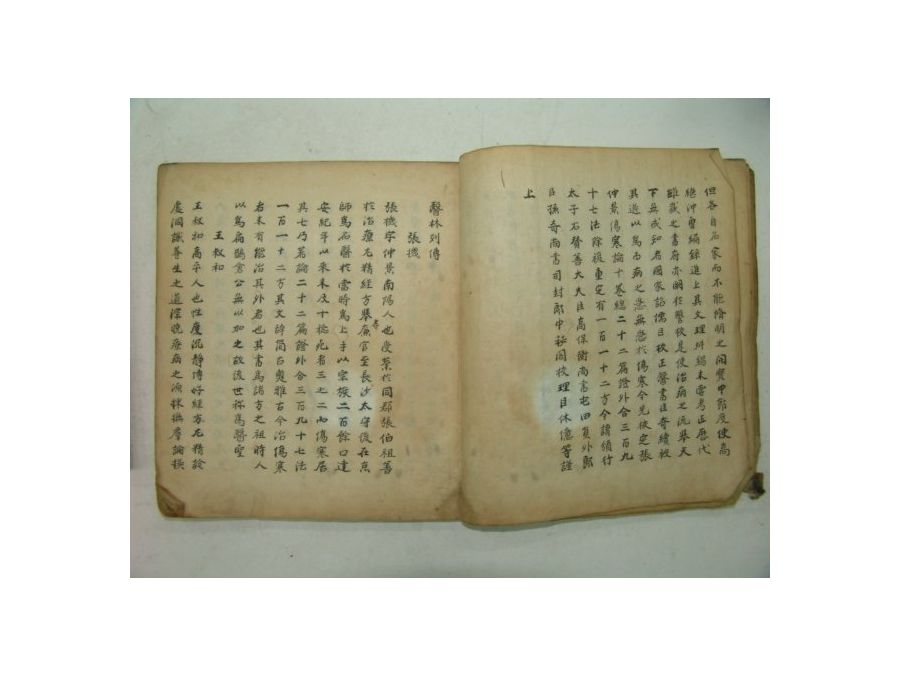 但各自名家而不能脩明之開寶中節度使高
繼沖曾編錄進上其文理舛錯未嘗考正歷代
雖藏之書府亦闕於讐校是使治病之流擧天
下無或知者國家詔儒臣校正醫書臣奇續被
其選以爲百病之急無急於傷寒今先校定張
仲景傷寒論十卷總二十二篇證外合三百九
十七法除複重定有一百一十二方今請頒行
太子右贊善大夫臣高保衡尚書屯田員外郞
臣孫奇尚書司封郎中秘閣校理臣林億等謹
上
醫林列傳
張機
張機字仲景南陽人也受業於同郡張伯祖善
於治療尤精經方擧孝廉官至長沙太守後在京
師爲名醫於當時爲上手以宗族二百餘口建
安紀年以來未及十稔死者三之二而傷寒居
其七乃著論二十二篇證外合三百九十七法
一百一十二方其文辭簡古奧雅古今治傷寒
者未有能治其外者也其書爲諸方之祖時人
以爲扁鵲倉公無以加之故後世稱爲醫聖
王叔和
王叔和高平人也性度沉靜博好經方尤精診
處洞識養生之道深曉療病之源採摭群論撰